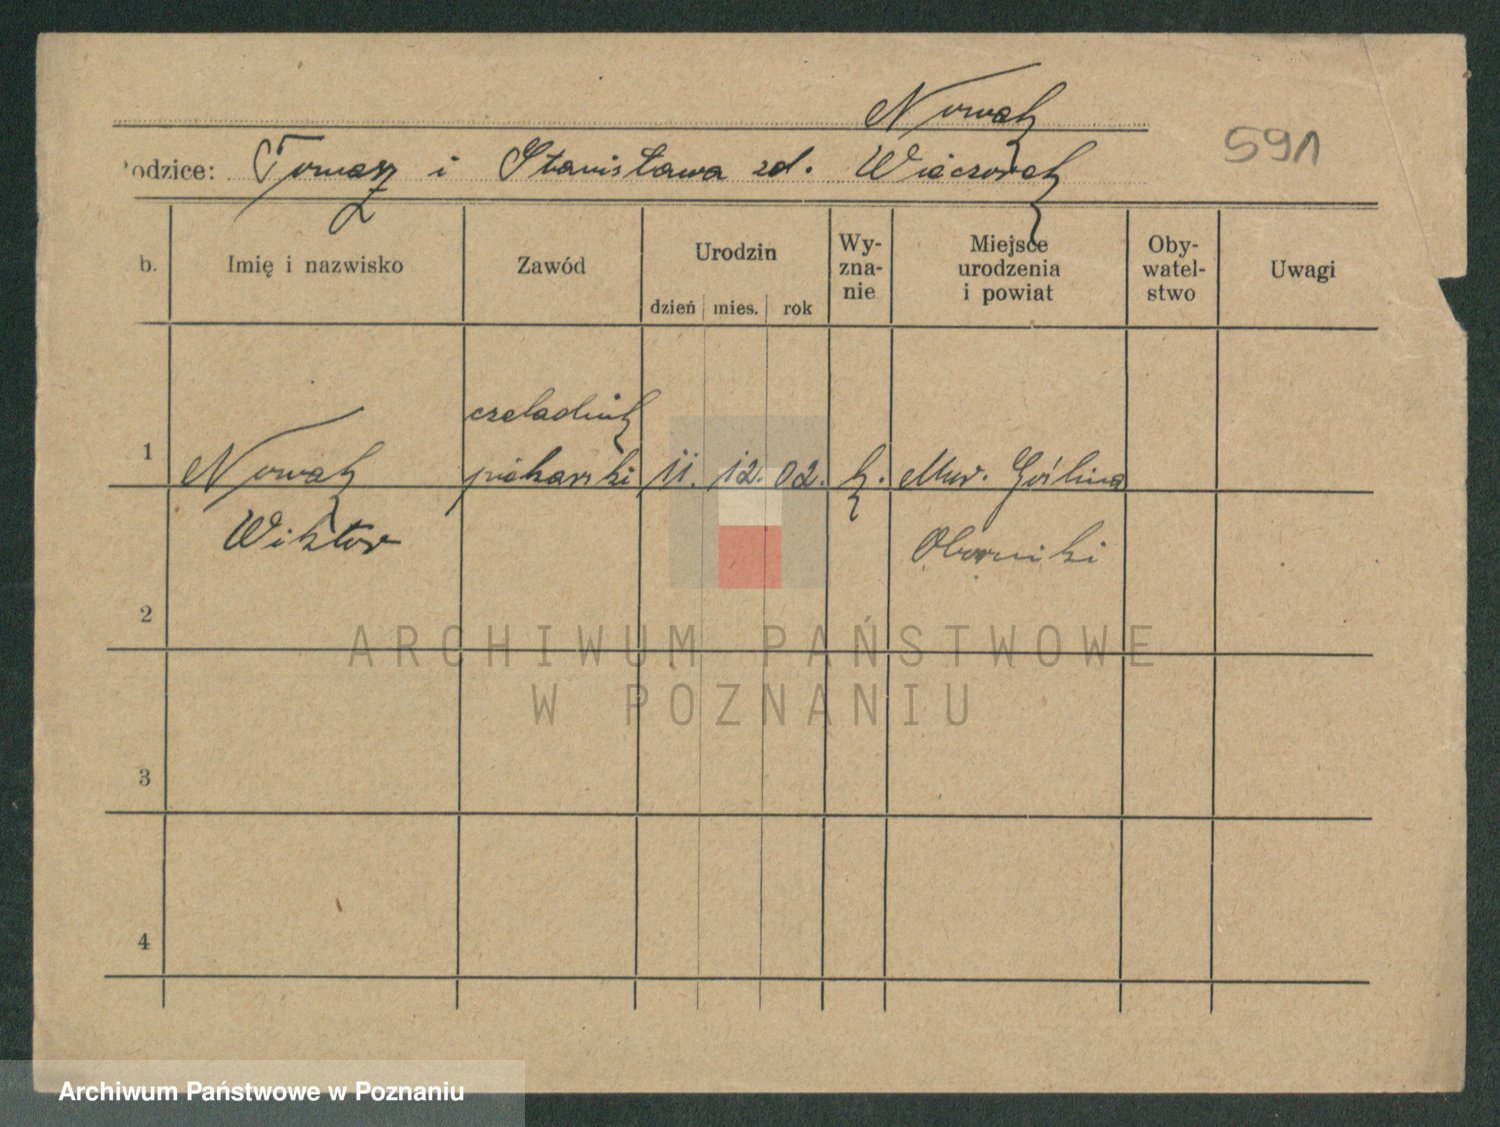 Nowak
591
odzice: Tomasz i Stanisława zd. Wieczorek
b.
Imię i nazwisko
Zawód
Urodzin
dzień mies. rok
Wy-
zna-
nie
Miejsce
urodzenia
i powiat
Oby-
watel-
stwo
Uwagi
czeladnik
1 Nowak piekarski 11. 12. 02. k. Mur. Goślina
Wiktor Oborniki
2
ARCHIWUM PAŃSTWOWE
W POZNANIU
3
4
Archiwum Państwowe w Poznaniu